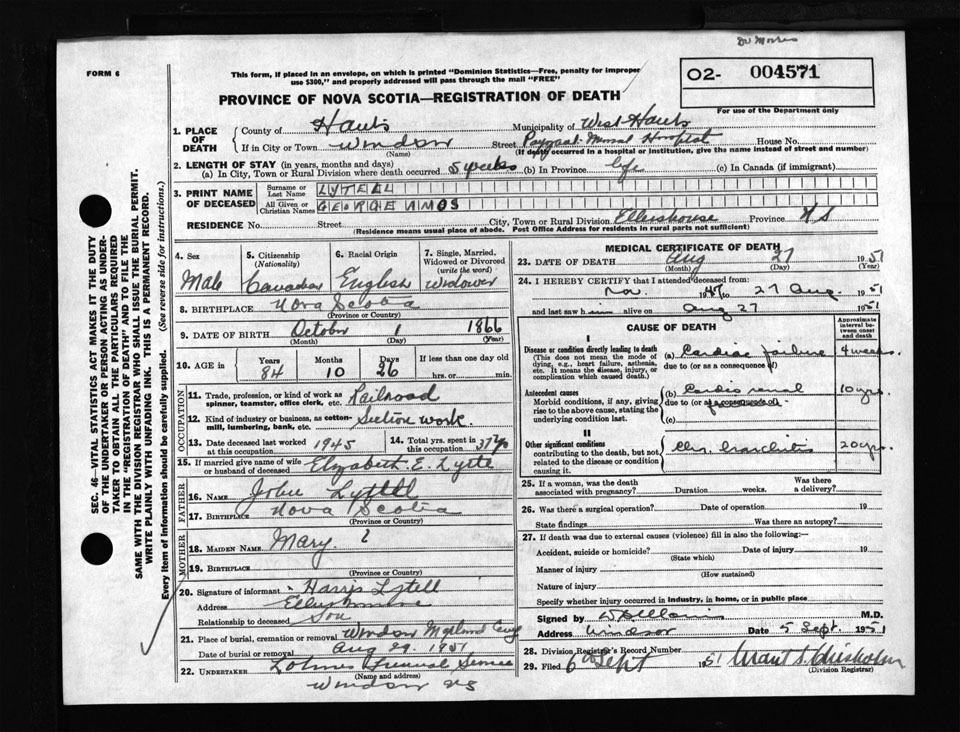 Dr Morris
FORM 6
This form, if placed in an envelope, on which is printed "Dominion Statistics—Free, penalty for improper
use $300," and properly addressed will pass through the mail "FREE"
02- 004571
For use of the Department only
PROVINCE OF NOVA SCOTIA—REGISTRATION OF DEATH
SEC. 46—VITAL STATISTICS ACT MAKES IT THE DUTY
OF THE UNDERTAKER OR PERSON ACTING AS UNDER-
TAKER TO OBTAIN ALL THE PARTICULARS REQUIRED
IN THE "REGISTRATION OF DEATH" AND TO FILE THE
SAME WITH THE DIVISION REGISTRAR WHO SHALL ISSUE THE BURIAL PERMIT.
WRITE PLAINLY WITH UNFADING INK. THIS IS A PERMANENT RECORD.
Every item of information should be carefully supplied. (See reverse side for instructions.)
1. PLACE OF DEATH
County of Hants Municipality of West Hants
If in City or Town Windsor Street Payzant Memorial Hospital House No.
(Name) (If death occurred in a hospital or institution, give the name instead of street and number)
2. LENGTH OF STAY (in years, months and days)
(a) In City, Town or Rural Division where death occurred 5 weeks (b) In Province life (c) In Canada (if immigrant)
3. PRINT NAME OF DECEASED
Surname or Last Name LYTELL
All Given or Christian Names GEORGE AMOS
RESIDENCE No. Street City, Town or Rural Division Ellershouse Province N S
(Residence means usual place of abode. Post Office Address for residents in rural parts not sufficient)
4. Sex Male
5. Citizenship (Nationality) Canadian
6. Racial Origin English
7. Single, Married, Widowed or Divorced (write the word) Widower
8. BIRTHPLACE Nova Scotia
(Province or Country)
9. DATE OF BIRTH October 1 1866
(Month) (Day) (Year)
10. AGE in Years 84 Months 10 Days 26 If less than one day hrs. or min.
OCCUPATION
11. Trade, profession, or kind of work as spinner, teamster, office clerk, etc. Railroad
12. Kind of industry or business, as cotten-mill, lumbering, bank, etc. Section work
13. Date deceased last worked at this occupation 1945
14. Total yrs. spent in this occupation 37 yr
15. If married give name of wife or husband of deceased Elizabeth. E. Lytle
FATHER
16. NAME John Lyttell
17. BIRTHPLACE Nova Scotia
(Province or Country)
MOTHER
18. MAIDEN NAME Mary. ?
19. BIRTHPLACE
(Province or Country)
20. Signature of informant Harris Lytell
Address Ellershouse
Relationship to deceased Son
21. Place of burial, cremation or removal Windsor
Date of burial or removal Aug 29. 1951
22. UNDERTAKER Funeral Service
(Name and address)
Windsor NS
MEDICAL CERTIFICATE OF DEATH
23. DATE OF DEATH Aug 27 1951
(Month) (Day) (Year)
24. I HEREBY CERTIFY that I attended deceased from:
Nov. 1947 to 27 Aug 1951
and last saw him alive on Aug 27 1951
CAUSE OF DEATH
Approximate interval between onset and death
I
Disease or condition directly leading to death (a) Cardiac failure 4 weeks.
(This does not mean the mode of dying, e.g., heart failure, asthenia, etc. It means the disease, injury, or complication which caused death.)
due to (or as a consequence of)
Antecedent causes (b) Cardio renal 10 yrs.
Morbid conditions, if any, giving rise to the above cause, stating the underlying condition last.
due to (or as a consequence of)
(c)
II
Other significant conditions contributing to the death, but not related to the disease or condition causing it. Chr. bronchitis 20 yrs.
25. If a woman, was the death associated with pregnancy? Duration weeks. Was there a delivery?
26. Was there a surgical operation? Date of operation 19
State findings Was there an autopsy?
27. If death was due to external causes (violence) fill in also the following:—
Accident, suicide or homicide? Date of injury 19
(State which)
Manner of injury
(How sustained)
Nature of injury
Specify whether injury occurred in industry, in home, or in public place
Signed by M.D.
Address Windsor Date 5 Sept. 1951
28. Division Registrar's Record Number
29. Filed 6th Sept 1951 Grant S. Chisholm
(Division Registrar)